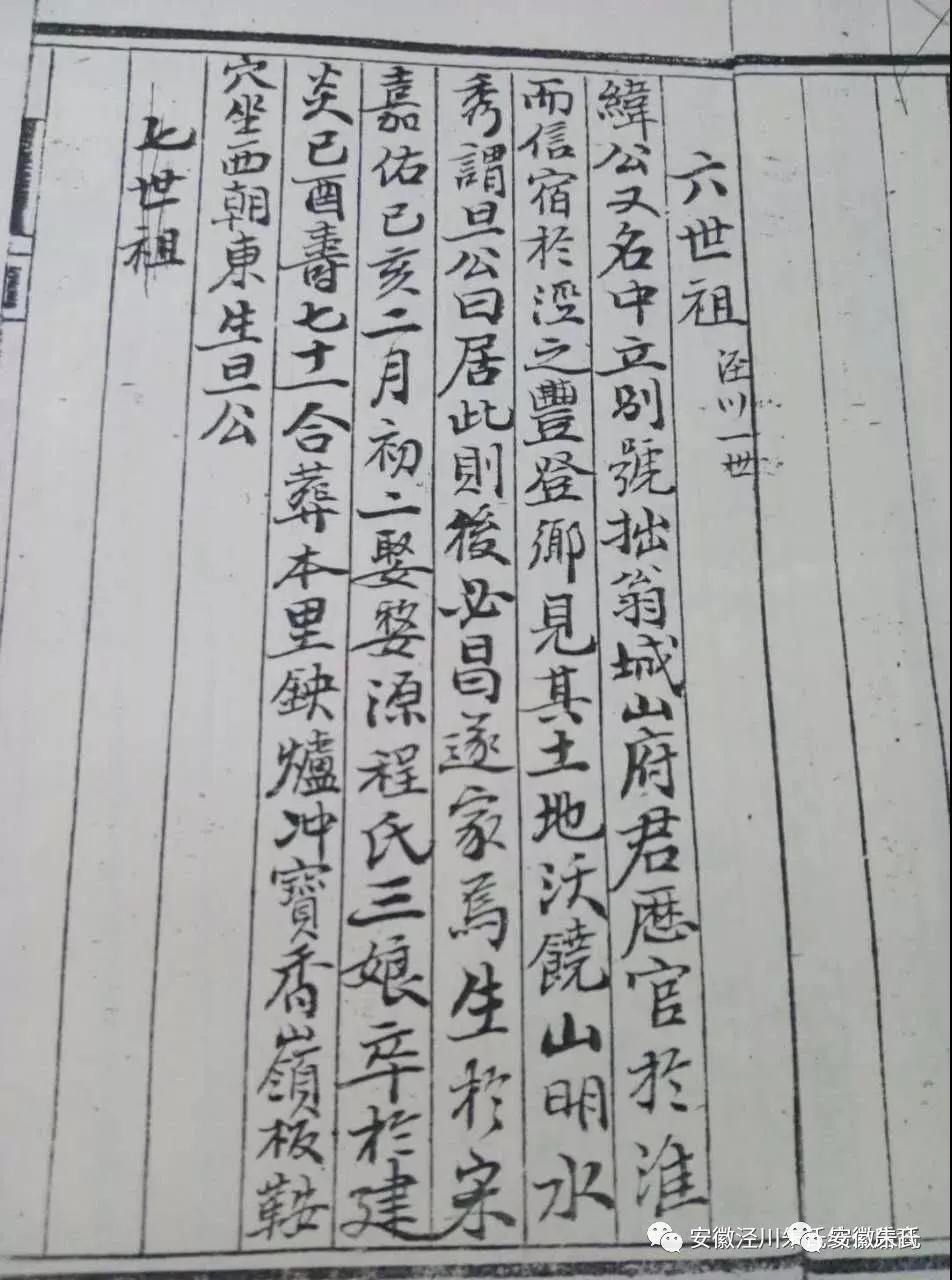 六世祖 泾川一世
緯公又名中立别號拙翁城山府君歷官於淮
而信宿於涇之豐登鄉見其土地沃饒山明水
秀謂旦公曰居此則後必昌遂家焉生於宋
嘉佑己亥二月初二娶婺源程氏三娘卒於建
炎已酉壽七十一合葬本里鉄爐冲寶香嶺板鞍
穴坐西朝東生旦公
七世祖
安徽泾川朱氏
安徽朱氏